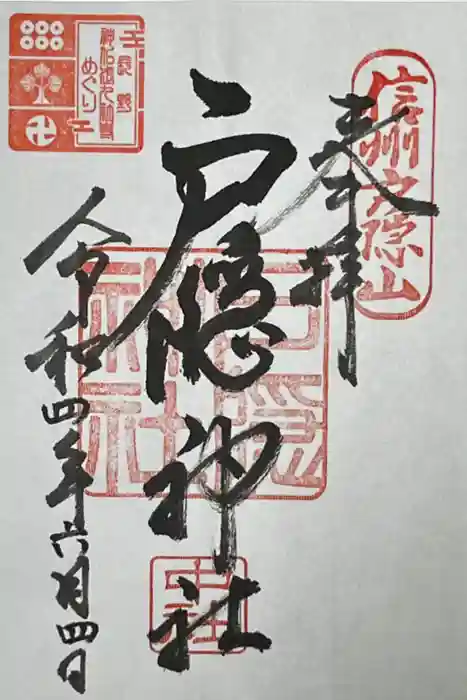 信州戸隠山
奉拝
戸隠神社
戸隠神社
中社
令和四年六月四日
長野
めぐり